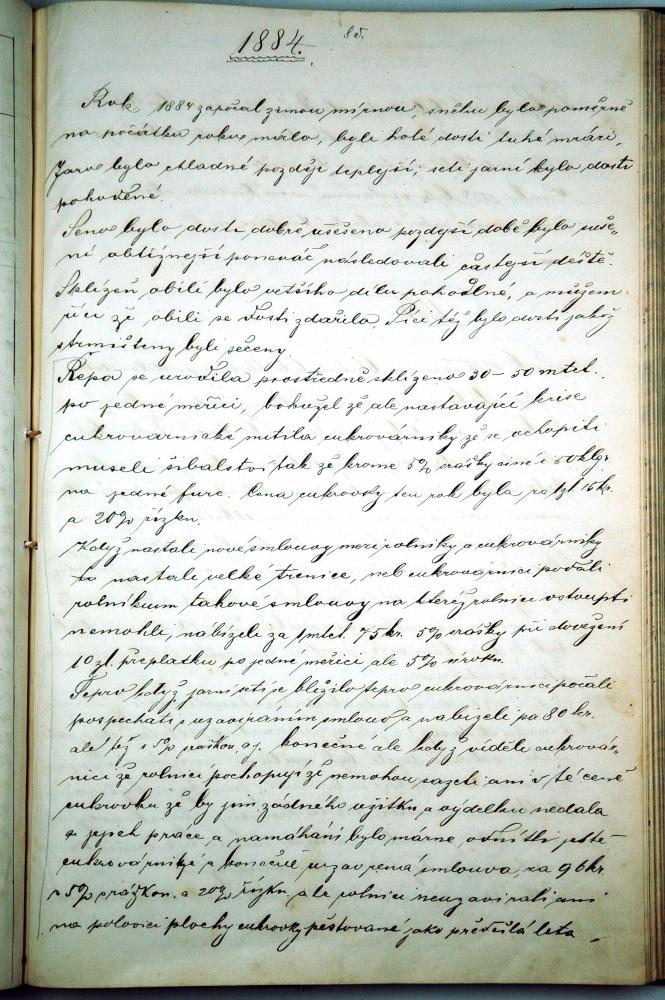 1884.
85.
Rok 1884 započal zimou mírnou, sněhu bylo poměrně
na počátku roku málo, byli holé dosti tuhé mrázi,
Jaro bylo chladné později teplejší, setí jarní bylo dosti
pohodlné.
Seno bylo dosti dobře usušeno pozdější době bylo suše„
ní obtížnejší poněvač následovali častejší deště.
Sklizeň obilí bylo vetšího dílu pohodlné, a můžem
říci že obilí se dosti zdařilo. Píce též bylo dosti jakož
strništeny byli sečeny.
Řepa se urodila prostředně sklizeno 30 – 50 mtct.
po jedné měřici, bohužel že ale nastavající krise
cukrovarnické nutila cukrovárníky že se uchopiti
museli šibalství tak že krome 5% srašky činěi 50 klg.
na jedné fuře. Cena cukrovky ten rok byla za 1zl 15 kr.
a 20% řízku.
Když nastali nové smlouvy mezi rolníky a cukrovárníky
tu nastali velké trenice, neb cukrovárníci podali
rolníkum takové smlouvy na které rolníci vstoupiti
nemohli, nabízeli za 1 mtct. 75 kr. 5% srašky při dovežení
10 zl. přeplatku po jedné měřici ale 5% úroku.
Teprv když jarní setí se blížilo teprv cukrovárníci počali
pospechati s uzavíráním smluv a nabízeli po 80 kr.
ale též s 5% sraškou aj. konečné ale když viděli cukrová„
níci že rolníci pochopují že nemohou sazeti ani v té ceně
cukrovku že by jim žádného užitku a výdelku nedala
a jejich práce a namáhání bylo márne, odnítli ješte
cukrovárníky a konečně uzavrená smlouva, za 96 kr.
s 5% srážkou a 20% řízku, ale rolníci neuzavírali ani
na polovici plochy cukrovky pěstované jako předešlá léta